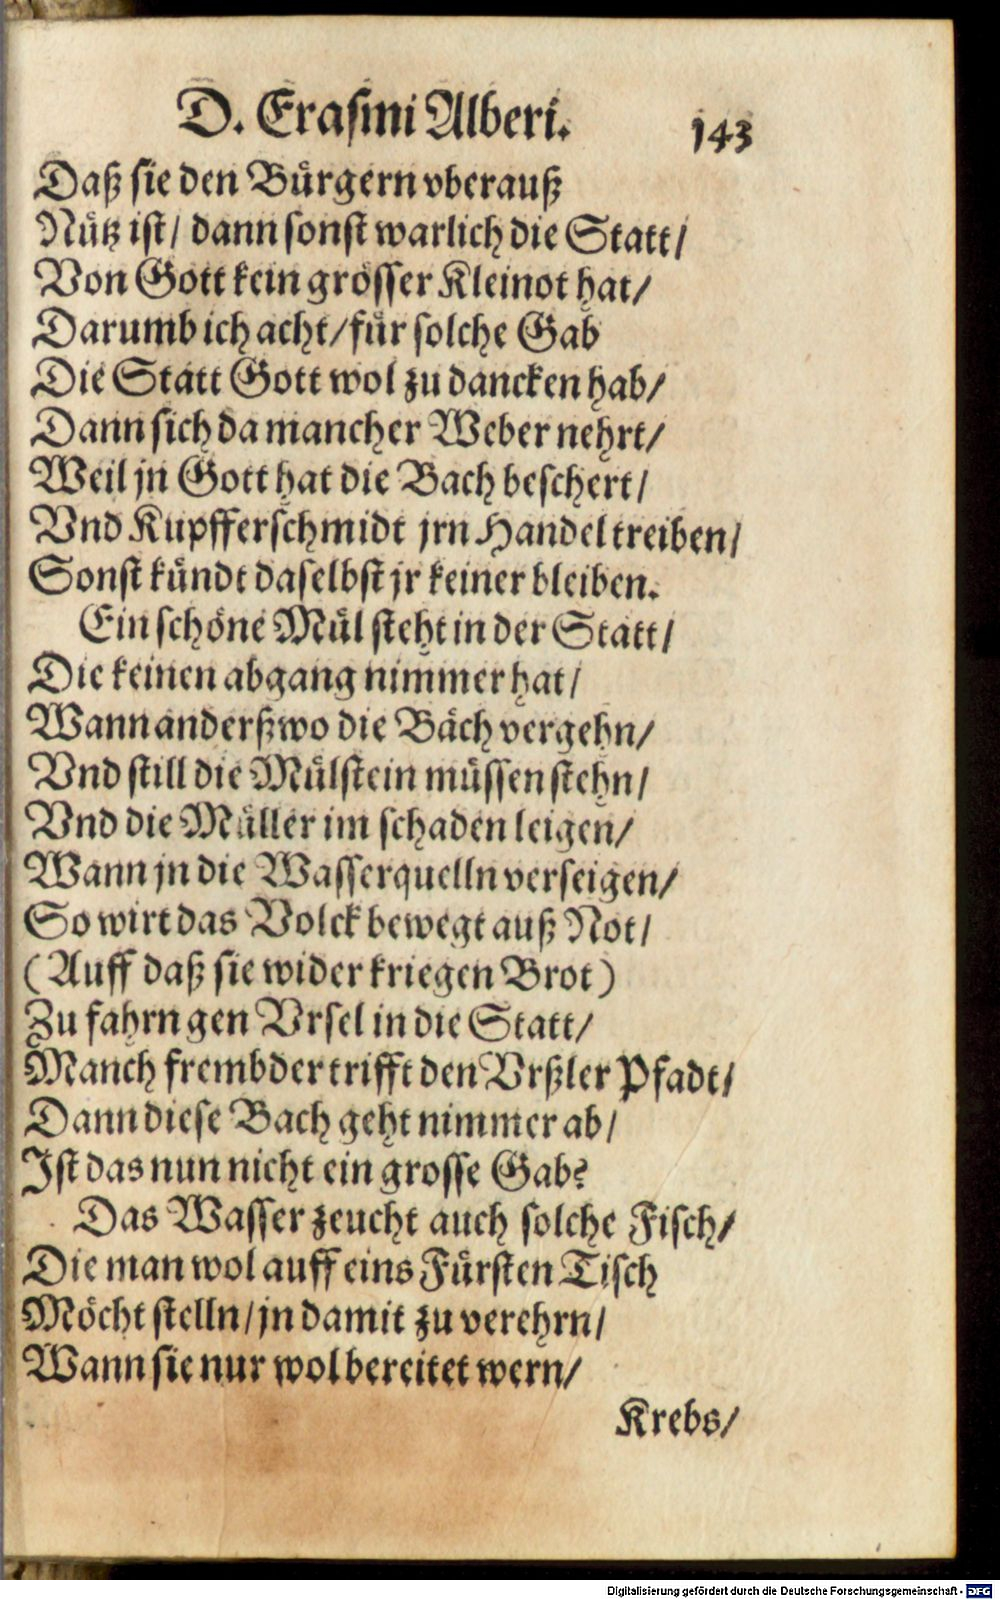 D. Erasmi Alberi. 143
Daß sie den Bürgern vberauß
Nütz ist/ dann sonst warlich die Statt/
Von Gott kein grösser Kleinot hat/
Darumb ich acht/ für solche Gab
Die Statt Gott wol zu dancken hab/
Dann sich da mancher Weber nehrt/
Weil jn Gott hat die Bach beschert/
Vnd Kupfferschmidt jrn Handel treiben/
Sonst kündt daselbst jr keiner bleiben.
Ein schöne Mül steht in der Statt/
Die keinen abgang nimmer hat/
Wann anderßwo die Bäch vergehn/
Vnd still die Mülstein müssen stehn/
Vnd die Müller im schaden leigen/
Wann jn die Wasserquelln verseigen/
So wirt das Volck bewegt auß Not/
(Auff daß sie wider kriegen Brot)
Zu fahrn gen Vrsel in die Statt/
Manch frembder trifft den Vrßler Pfadt/
Dann diese Bach geht nimmer ab/
Ist das nun nicht ein grosse Gab?
Das Wasser zeucht auch solche Fisch/
Die man wol auff eins Fürsten Tisch
Möcht stelln/ jn damit zu verehrn/
Wann sie nur wol bereitet wern/
Krebs/
Digitalisierung gefördert durch die Deutsche Forschungsgemeinschaft - DFG